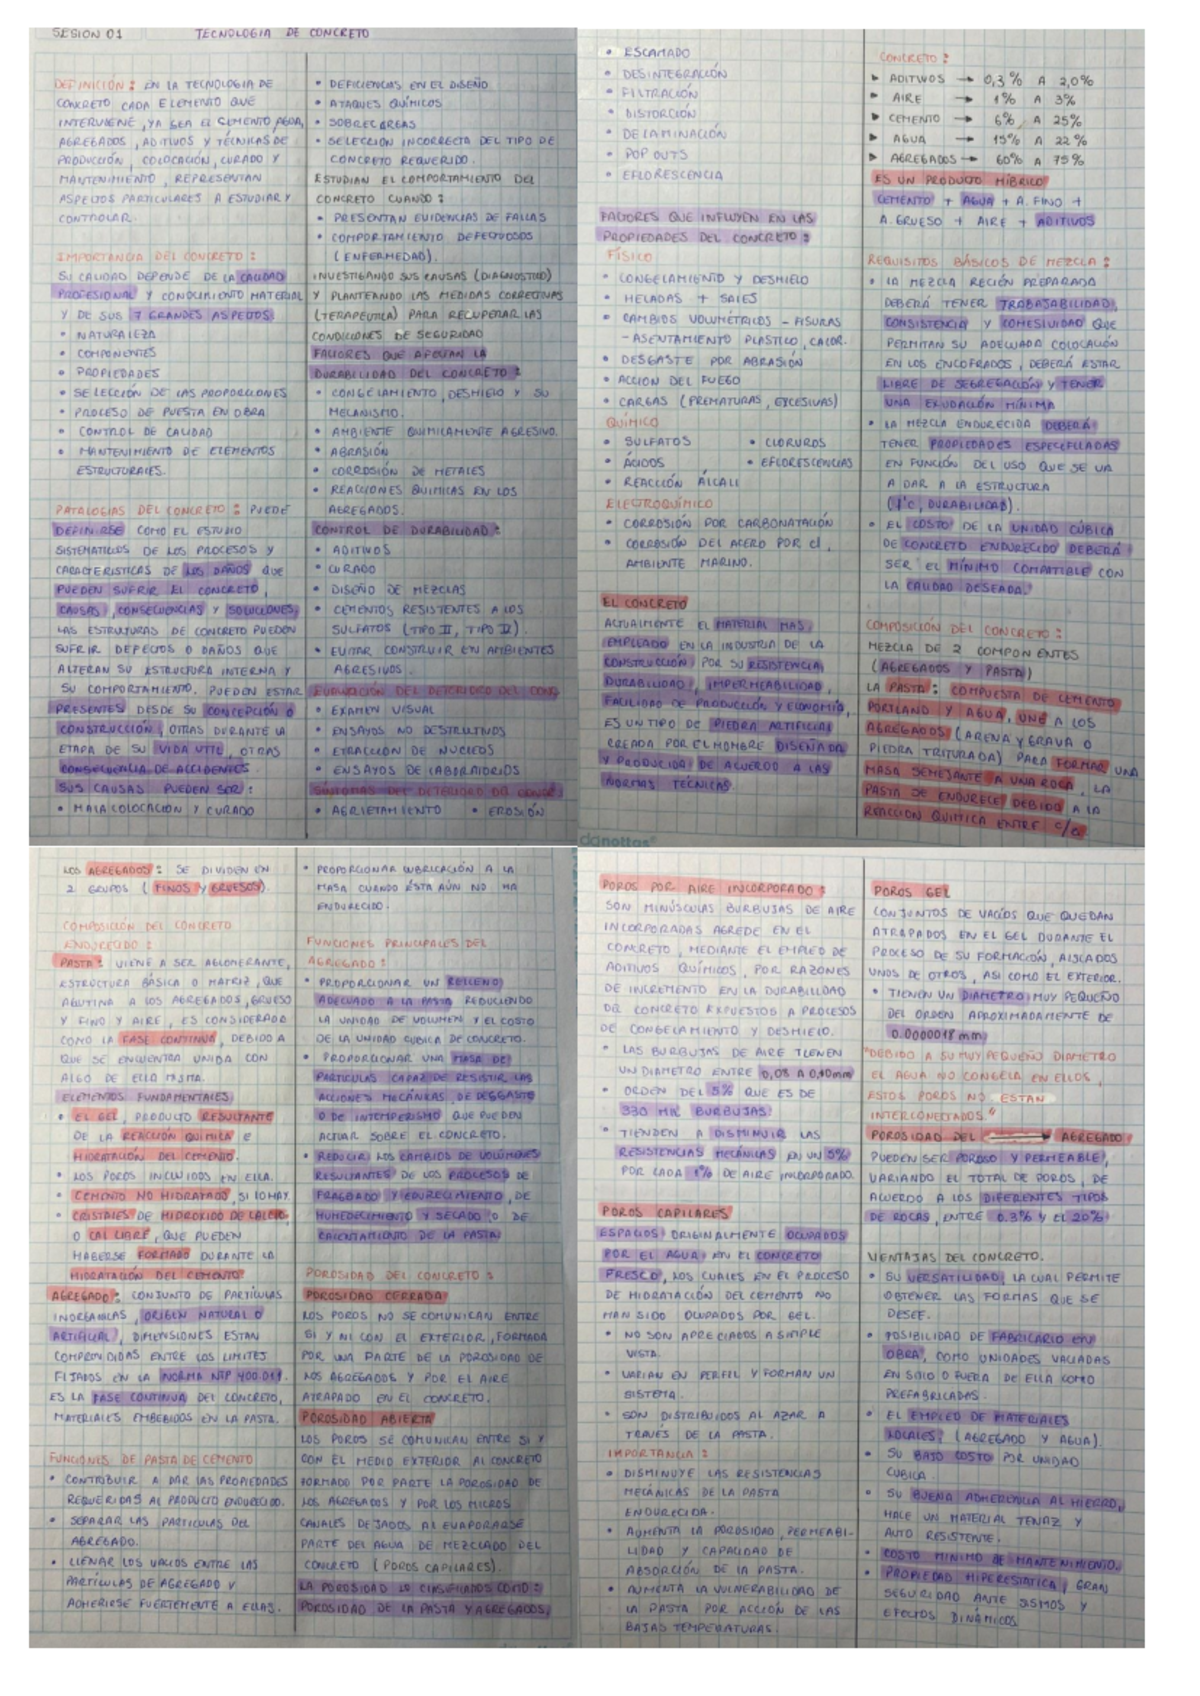 SESION 01
TECNOLOGIA DE CONCRETO
DEFINICIÓN: EN LA TECNOLOGIA DE
CONCRETO CADA ELEMENTO QUE
INTERVIENE, YA SEA EL CEMENTO, AGUA,
AGREGADOS, ADITIVOS Y TÉCNICAS DE
PRODUCCIÓN, COLOCACIÓN, CURADO Y
MANTENIMIENTO, REPRESENTAN
ASPECTOS PARTICULARES A ESTUDIAR Y
CONTROLAR.
IMPORTANCIA DEL CONCRETO:
SU CALIDAD DEPENDE DE LA CALIDAD
PROFESIONAL Y CONOCIMIENTO MATERIAL
Y DE SUS 7 GRANDES ASPECTOS:
• NATURALEZA
• COMPONENTES
• PROPIEDADES
• SELECCIÓN DE LAS PROPORCIONES
• PROCESO DE PUESTA EN OBRA
• CONTROL DE CALIDAD
• MANTENIMIENTO DE ELEMENTOS
ESTRUCTURALES.
PATALOGIAS DEL CONCRETO: PUEDE
DEFINIRSE COMO EL ESTUDIO
SISTEMATICOS DE LOS PROCESOS Y
CARACTERISTICAS DE LOS DAÑOS QUE
PUEDEN SUFRIR EL CONCRETO,
CAUSAS, CONSECUENCIAS Y SOLUCIONES,
LAS ESTRUCTURAS DE CONCRETO PUEDEN
SUFRIR DEFECTOS O DAÑOS QUE
ALTERAN SU ESTRUCTURA INTERNA Y
SU COMPORTAMIENTO. PUEDEN ESTAR
PRESENTES DESDE SU CONCEPCIÓN O
CONSTRUCCIÓN, OTRAS DURANTE LA
ETAPA DE SU VIDA UTIL, OTRAS
CONSECUENCIA DE ACCIDENTES.
SUS CAUSAS PUEDEN SER:
• MALA COLOCACIÓN Y CURADO
• DEFICIENCIAS EN EL DISEÑO
• ATAQUES QUÍMICOS
• SOBRECARGAS
• SELECCIÓN INCORRECTA DEL TIPO DE
CONCRETO REQUERIDO.
ESTUDIAN EL COMPORTAMIENTO DEL
CONCRETO CUANDO:
• PRESENTAN EVIDENCIAS DE FALLAS
• COMPORTAMIENTO DEFECTUOSOS
(ENFERMEDAD).
INVESTIGANDO SUS CAUSAS (DIAGNOSTICO)
Y PLANTEANDO LAS MEDIDAS CORRECTIVAS
(TERAPEUTICA) PARA RECUPERAR LAS
CONDICIONES DE SEGURIDAD
FACTORES QUE AFECTAN LA
DURABILIDAD DEL CONCRETO:
• CONGELAMIENTO, DESHIELO Y SU
MECANISMO.
• AMBIENTE QUIMICAMENTE AGRESIVO.
• ABRASIÓN
• CORROSIÓN DE METALES
• REACCIONES QUIMICAS EN LOS
AGREGADOS.
CONTROL DE DURABILIDAD:
• ADITIVOS
• CURADO
• DISEÑO DE MEZCLAS
• CEMENTOS RESISTENTES A LOS
SULFATOS (TIPO II, TIPO V).
• EVITAR CONSTRUIR EN AMBIENTES
AGRESIVOS.
EVALUACIÓN DEL DETERIORO DEL CONC
• EXAMEN VISUAL
• ENSAYOS NO DESTRUCTIVOS
• ETRACCION DE NUCLEOS
• ENSAYOS DE LABORATORIOS
SÍNTOMAS DEL DETERIORO DEL CONCR:
• AGRIETAMIENTO • EROSIÓN
• ESCAMADO
• DESINTEGRACIÓN
• FILTRACIÓN
• DISTORCIÓN
• DELAMINACIÓN
• POP OUTS
• EFLORESCENCIA
FACTORES QUE INFLUYEN EN LAS
PROPIEDADES DEL CONCRETO:
FÍSICO
• CONGELAMIENTO Y DESHIELO
• HELADAS + SALES
• CAMBIOS VOLUMÉTRICOS - FISURAS
- ASENTAMIENTO PLASTICO, CALOR.
• DESGASTE POR ABRASIÓN
• ACCION DEL FUEGO
• CARGAS (PREMATURAS, EXCESIVAS)
QUÍMICO
• SULFATOS • CLORUROS
• ÁCIDOS • EFLORESCENCIAS
• REACCIÓN ÁLCALI
ELECTROQUÍMICO
• CORROSIÓN POR CARBONATACIÓN
• CORROSIÓN DEL ACERO POR Cl,
AMBIENTE MARINO.
EL CONCRETO
ACTUALMENTE EL MATERIAL MAS
EMPLEADO EN LA INDUSTRIA DE LA
CONSTRUCCIÓN POR SU RESISTENCIA,
DURABILIDAD, IMPERMEABILIDAD,
FACILIDAD DE PRODUCCIÓN Y ECONOMÍA,
ES UN TIPO DE PIEDRA ARTIFICIAL
CREADA POR EL HOMBRE DISEÑADA
Y PRODUCIDA DE ACUERDO A LAS
NORMAS TÉCNICAS.
CONCRETO:
▶ ADITIVOS → 0,3% A 2,0%
▶ AIRE → 1% A 3%
▶ CEMENTO → 6% A 25%
▶ AGUA → 15% A 22%
▶ AGREGADOS → 60% A 75%
ES UN PRODUCTO HÍBRICO
CEMENTO + AGUA + A. FINO +
A. GRUESO + AIRE + ADITIVOS
REQUISITOS BÁSICOS DE MEZCLA:
• LA MEZCLA RECIÉN PREPARADA
DEBERÁ TENER TRABAJABILIDAD,
CONSISTENCIA Y COHESIVIDAD QUE
PERMITAN SU ADECUADA COLOCACIÓN
EN LOS ENCOFRADOS, DEBERÁ ESTAR
LIBRE DE SEGREGACIÓN Y TENER
UNA EXUDACIÓN MÍNIMA
• LA MEZCLA ENDURECIDA DEBERÁ
TENER PROPIEDADES ESPECIFICADAS
EN FUNCIÓN DEL USO QUE SE VA
A DAR A LA ESTRUCTURA
(f'c, DURABILIDAD).
• EL COSTO DE LA UNIDAD CÚBICA
DE CONCRETO ENDURECIDO DEBERÁ
SER EL MÍNIMO COMPATIBLE CON
LA CALIDAD DESEADA.
COMPOSICIÓN DEL CONCRETO:
MEZCLA DE 2 COMPONENTES
(AGREGADOS Y PASTA)
LA PASTA: COMPUESTA DE CEMENTO
PORTLAND Y AGUA, UNE A LOS
AGREGADOS (ARENA Y GRAVA O
PIEDRA TRITURADA) PARA FORMAR UNA
MASA SEMEJANTE A UNA ROCA, LA
PASTA SE ENDURECE DEBIDO A LA
REACCION QUIMICA ENTRE C/A
danottas
LOS AGREGADOS: SE DIVIDEN EN
2 GRUPOS (FINOS Y GRUESOS).
COMPOSICIÓN DEL CONCRETO
ENDURECIDO:
PASTA: VIENE A SER AGLOMERANTE,
ESTRUCTURA BÁSICA O MATRIZ, QUE
AGLUTINA A LOS AGREGADOS, GRUESO
Y FINO Y AIRE, ES CONSIDERADO
COMO LA FASE CONTINUA, DEBIDO A
QUE SE ENCUENTRA UNIDA CON
ALGO DE ELLA MISMA.
ELEMENTOS FUNDAMENTALES
• EL GEL, PRODUCTO RESULTANTE
DE LA REACCIÓN QUIMICA E
HIDRATACIÓN DEL CEMENTO.
• LOS POROS INCLUIDOS EN ELLA.
• CEMENTO NO HIDRATADO, SI LO HAY.
• CRISTALES DE HIDROXIDO DE CALCIO,
O CAL LIBRE, QUE PUEDEN
HABERSE FORMADO DURANTE LA
HIDRATACIÓN DEL CEMENTO.
AGREGADO: CONJUNTO DE PARTÍCULAS
INORGANICAS, ORIGEN NATURAL O
ARTIFICIAL, DIMENSIONES ESTAN
COMPRENDIDAS ENTRE LOS LIMITES
FIJADOS EN LA NORMA NTP 400.011.
ES LA FASE CONTINUA DEL CONCRETO,
MATERIALES EMBEBIDOS EN LA PASTA.
FUNCIONES DE PASTA DE CEMENTO
• CONTRIBUIR A DAR LAS PROPIEDADES
REQUERIDAS AL PRODUCTO ENDURECIDO.
• SEPARAR LAS PARTICULAS DEL
AGREGADO.
• LLENAR LOS VACIOS ENTRE LAS
PARTÍCULAS DE AGREGADO Y
ADHERIRSE FUERTEMENTE A ELLAS.
• PROPORCIONAR LUBRICACIÓN A LA
MASA CUANDO ÉSTA AÚN NO HA
ENDURECIDO.
FUNCIONES PRINCIPALES DEL
AGREGADO:
• PROPORCIONAR UN RELLENO
ADECUADO A LA PASTA REDUCIENDO
LA UNIDAD DE VOLUMEN Y EL COSTO
DE LA UNIDAD CUBICA DE CONCRETO.
• PROPORCIONAR UNA MASA DE
PARTICULAS CAPAZ DE RESISTIR LAS
ACCIONES MECÁNICAS DE DESGASTO
O DE INTEMPERISMO QUE PUEDEN
ACTUAR SOBRE EL CONCRETO.
• REDUCIR LOS CAMBIOS DE VOLÚMENES
RESULTANTES DE LOS PROCESOS DE
FRAGUADO Y EDURECIMIENTO, DE
HUMEDECIMIENTO Y SECADO O DE
CALENTAMIENTO DE LA PASTA
POROSIDAD DEL CONCRETO:
POROSIDAD CERRADA
LOS POROS NO SE COMUNICAN ENTRE
SI Y NI CON EL EXTERIOR, FORMADA
POR UNA PARTE DE LA POROSIDAD DE
LOS AGREGADOS Y POR EL AIRE
ATRAPADO EN EL CONCRETO.
POROSIDAD ABIERTA
LOS POROS SE COMUNICAN ENTRE SI Y
CON EL MEDIO EXTERIOR AL CONCRETO
FORMADO POR PARTE LA POROSIDAD DE
LOS AGREGADOS Y POR LOS MICROS
CANALES DEJADOS AL EVAPORARSE
PARTE DEL AGUA DE MEZCLADO DEL
CONCRETO (POROS CAPILARES).
LA POROSIDAD LO CLASIFICADOS COMO:
POROSIDAD DE LA PASTA Y AGREGADOS,
POROS POR AIRE INCORPORADO:
SON MINÚSCULAS BURBUJAS DE AIRE
INCORPORADAS AGREDE EN EL
CONCRETO, MEDIANTE EL EMPLEO DE
ADITIVOS QUÍMICOS, POR RAZONES
DE INCREMENTO EN LA DURABILIDAD
DEL CONCRETO EXPUESTOS A PROCESOS
DE CONGELAMIENTO Y DESHIELO.
• LAS BURBUJAS DE AIRE TIENEN
UN DIAMETRO ENTRE 0,08 A 0,10mm
• ORDEN DEL 5% QUE ES DE
330 MIL BURBUJAS.
• TIENDEN A DISMINUIR LAS
RESISTENCIAS MECÁNICAS EN UN 5%
POR CADA 1% DE AIRE INCORPORADO.
POROS CAPILARES
ESPACIOS ORIGINALMENTE OCUPADOS
POR EL AGUA EN EL CONCRETO
FRESCO, LOS CUALES EN EL PROCESO
DE HIDRATACIÓN DEL CEMENTO NO
HAN SIDO OCUPADOS POR GEL.
• NO SON APRECIADOS A SIMPLE
VISTA.
• VARIAN EN PERFIL Y FORMAN UN
SISTEMA.
• SON DISTRIBUIDOS AL AZAR A
TRAVÉS DE LA PASTA.
IMPORTANCIA:
• DISMINUYE LAS RESISTENCIAS
MECÁNICAS DE LA PASTA
ENDURECIDA.
• AUMENTA LA POROSIDAD, PERMEABI-
LIDAD Y CAPACIDAD DE
ABSORCIÓN DE LA PASTA.
• AUMENTA LA VULNERABILIDAD DE
LA PASTA POR ACCIÓN DE LAS
BAJAS TEMPERATURAS.
POROS GEL
CONJUNTOS DE VACÍOS QUE QUEDAN
ATRAPADOS EN EL GEL DURANTE EL
PROCESO DE SU FORMACIÓN, AISLADOS
UNOS DE OTROS, ASI COMO EL EXTERIOR.
• TIENEN UN DIAMETRO MUY PEQUEÑO
DEL ORDEN APROXIMADAMENTE DE
0.0000018 mm
"DEBIDO A SU MUY PEQUEÑO DIAMETRO
EL AGUA NO CONGELA EN ELLOS,
ESTOS POROS NO ESTAN
INTERCONECTADOS."
POROSIDAD DEL AGREGADO
PUEDEN SER POROSO Y PERMEABLE,
VARIANDO EL TOTAL DE POROS, DE
ACUERDO A LOS DIFERENTES TIPOS
DE ROCAS, ENTRE 0.3% Y EL 20%
VENTAJAS DEL CONCRETO.
• SU VERSATILIDAD, LA CUAL PERMITE
OBTENER LAS FORMAS QUE SE
DESEE.
• POSIBILIDAD DE FABRICARLO EN
OBRA, COMO UNIDADES VACIADAS
EN SOLO O FUERA DE ELLA COMO
PREFABRICADAS.
• EL EMPLEO DE MATERIALES
LOCALES, (AGREGADO Y AGUA).
• SU BAJO COSTO POR UNIDAD
CUBICA.
• SU BUENA ADHERENCIA AL HIERRO,
HACE UN MATERIAL TENAZ Y
AUTO RESISTENTE.
• COSTO MINIMO DE MANTENIMIENTO.
• PROPIEDAD HIPERESTATICA, GRAN
SEGURIDAD ANTE SISMOS Y
EFECTOS DINÁMICOS